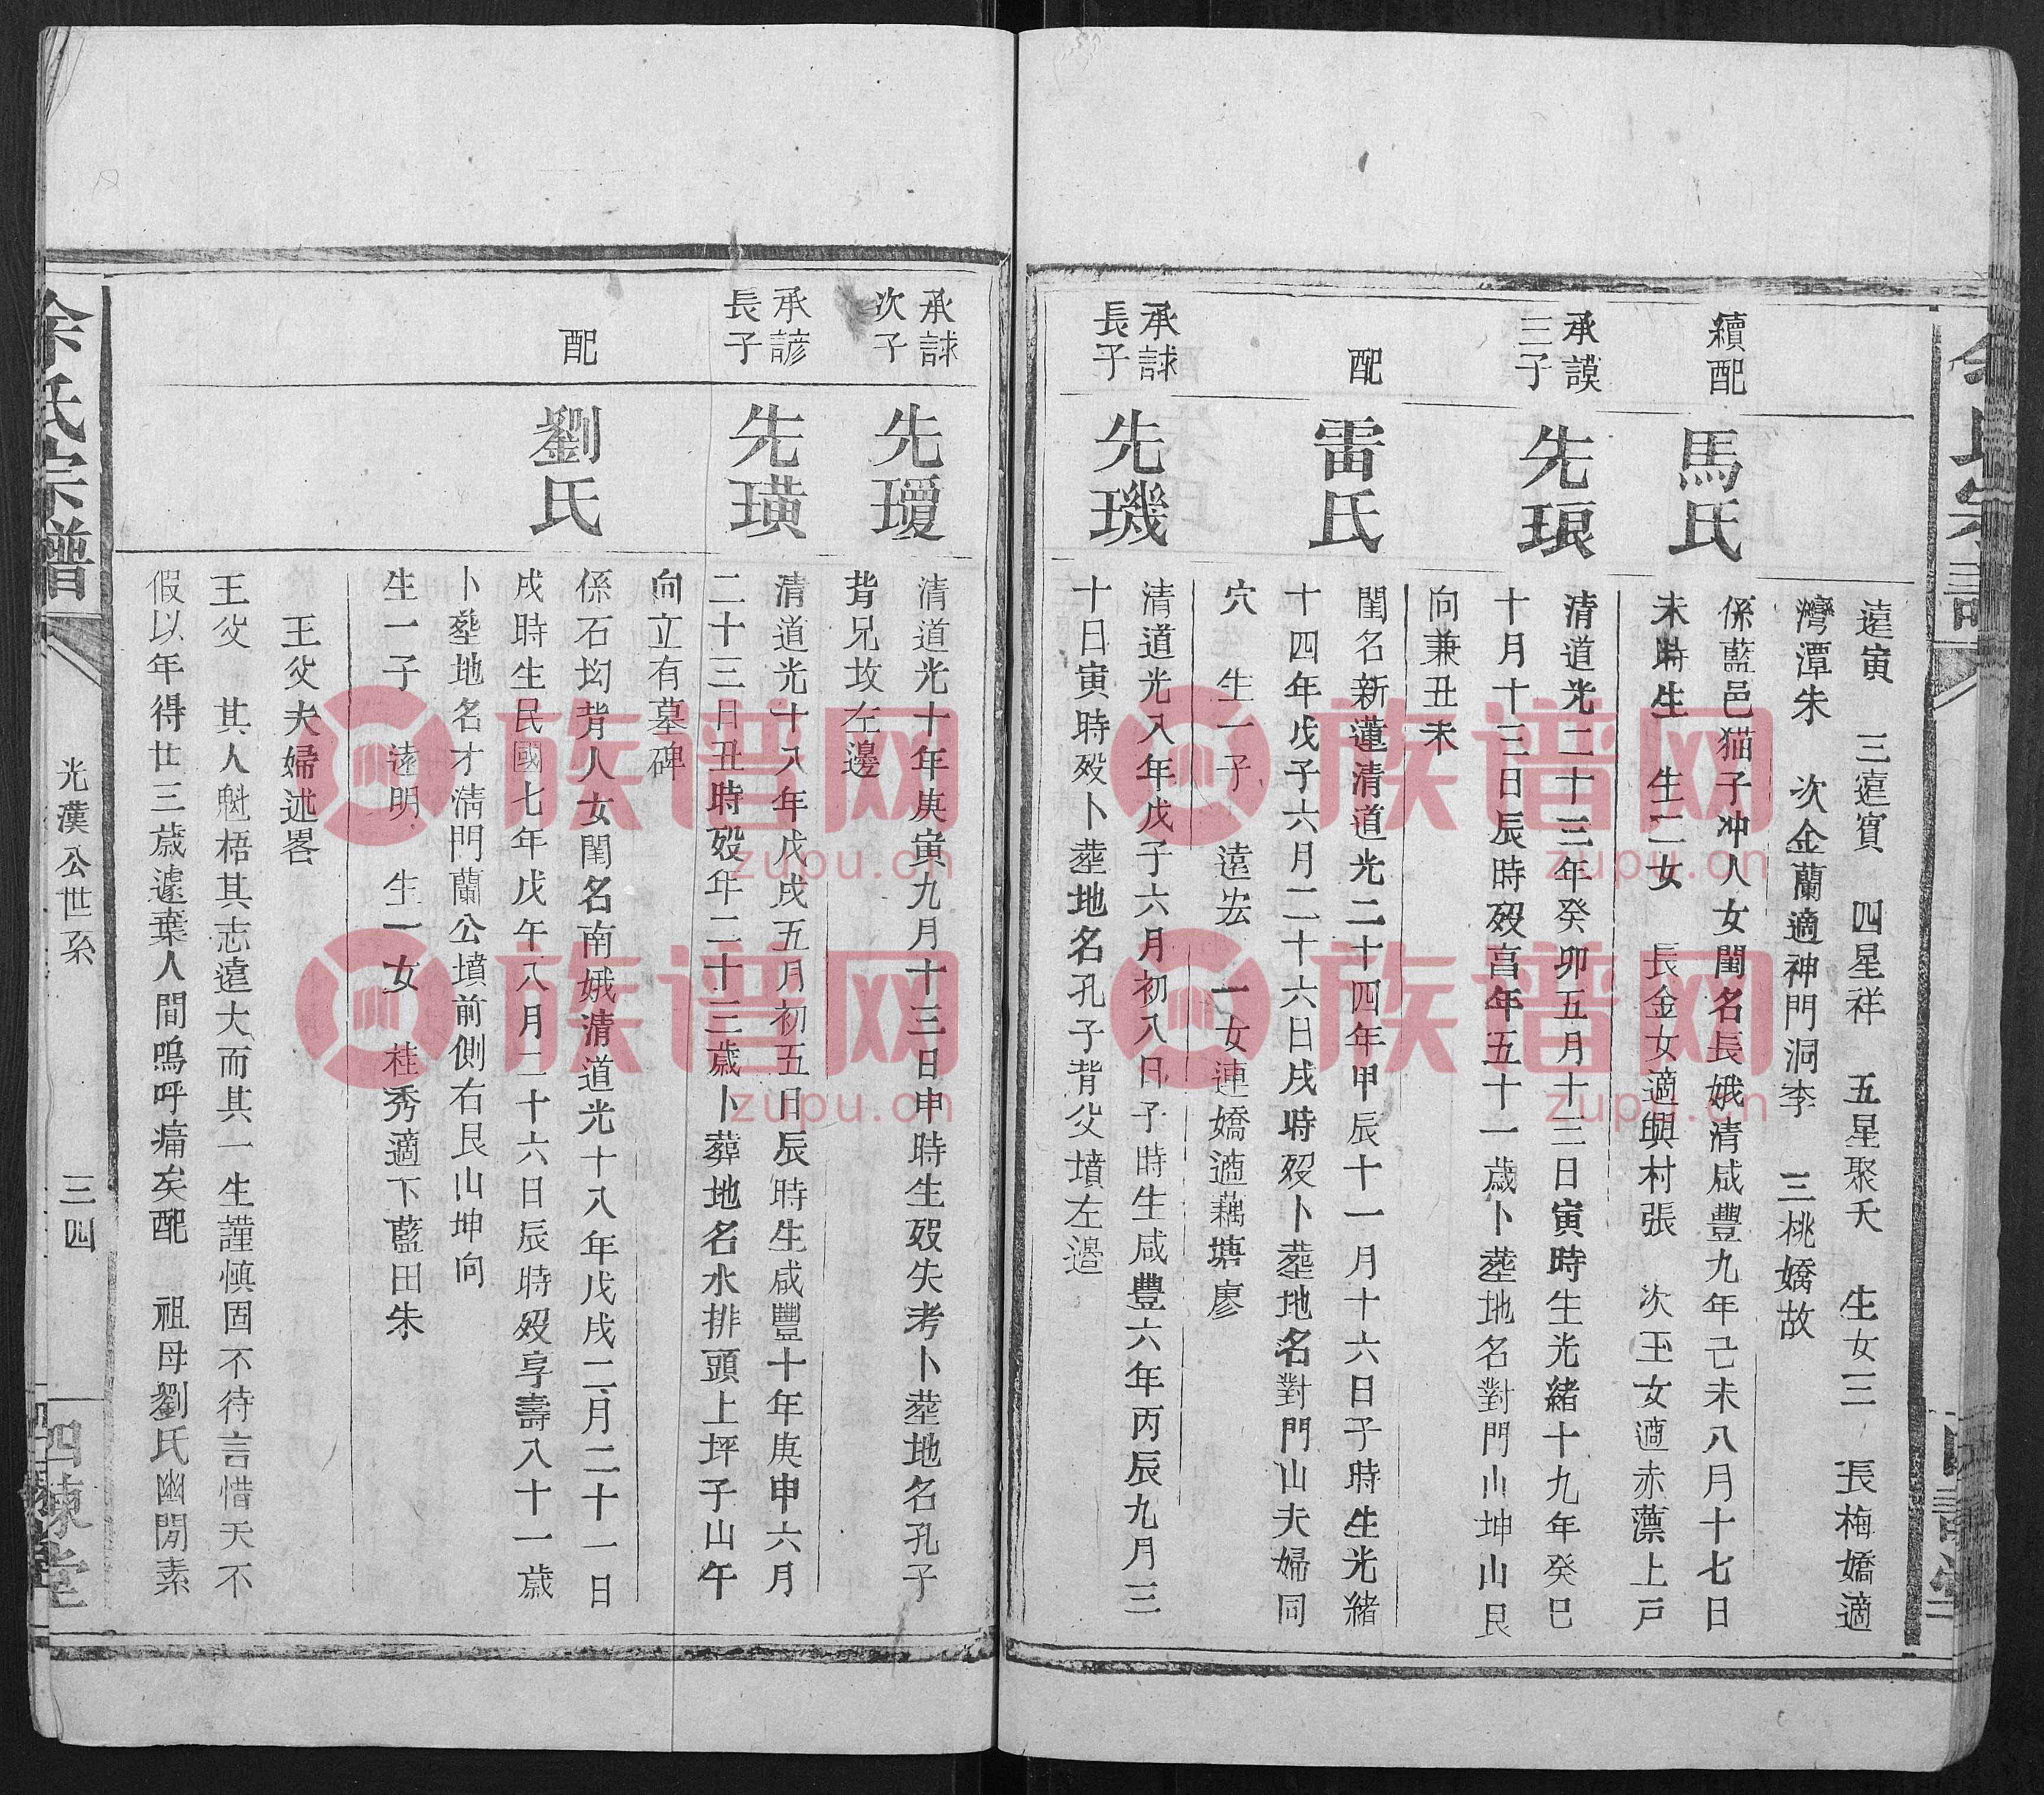 遠寅　三遠賓　四星祥　五星聚夭　生女三　長梅嬌適
灣潭朱　次金蘭適神門洞李　三桃嬌故
續配
馬氏
係藍邑猫子冲人女閨名長娥清咸豐九年己未八月十七日
未時生　生二女　長金女適興村張　次玉女適赤薸上戸
承謨
三子
先琅
清道光二十三年癸卯五月十三日寅時生光緒十九年癸巳
十月十三日辰時殁亯年五十一歲卜塟地名對門山坤山艮
向兼丑未
配
雷氏
閨名新蓮清道光二十四年甲辰十一月十六日子時生光緒
十四年戊子六月二十六日戌時殁卜塟地名對門山夫婦同
穴　生一子　遠宏　一女連嬌適藕塘廖
承訧
長子
先璣
清道光八年戊子六月初八日子時生咸豐六年丙辰九月三
十日寅時殁卜塟地名孔子背父墳左邉
承訧
次子
先瓊
清道光十年庚寅九月十三日申時生殁失考卜塟地名孔子
背兄坟左邊
承諺
長子
先璜
清道光十八年戊戌五月初五日辰時生咸豐十年庚申六月
二十三日丑時殁年二十三歲卜葬地名水排頭上坪子山午
向立有墓碑
配
劉氏
係石坳背人女閨名南娥清道光十八年戊戌二月二十一日
戌時生民國七年戊午八月二十六日辰時殁享壽八十一歲
卜塟地名才淸門蘭公墳前側右艮山坤向
生一子　遠明　生一女　桂秀適下藍田朱
王父夫婦述畧
王父　其人魁梧其志遠大而其一生謹慎固不待言惜天不
假以年得廿三歲遽棄人間嗚呼痛矣配　祖母劉氏幽閒素
余氏宗譜
光漢公世系
三四
四諫堂
族谱网
zupu.cn
族谱网
zupu.cn
族谱网
zupu.cn
族谱网
zupu.cn